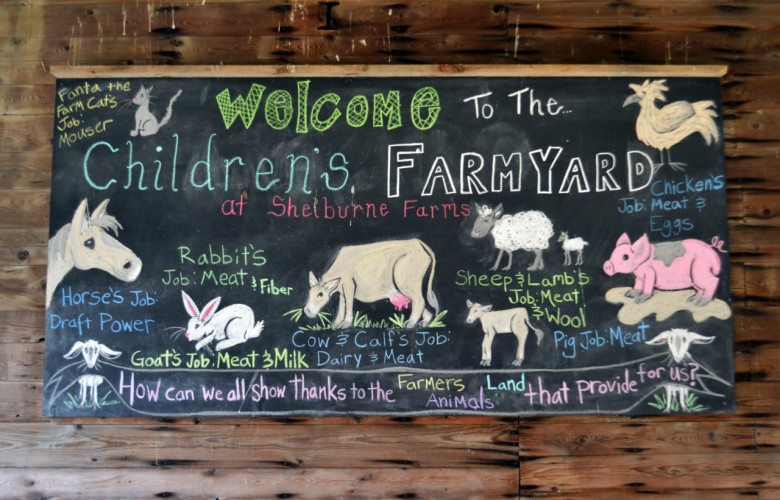 Fanta the
Farm Cat's
Job:
Mouser
Welcome To The...
Children's FARMYARD
at Shelburne Farms
Chicken's
Job: Meat &
Eggs
Rabbit's
Job: Meat & Fiber
Horse's Job:
Draft Power
Sheep & Lamb's
Job: Meat
& Wool
Cow & Calf's Job:
Dairy & Meat
Pig Job: Meat
Goat's Job: Meat & Milk
How can we all show thanks to the Farmers Animals Land that provide for us?